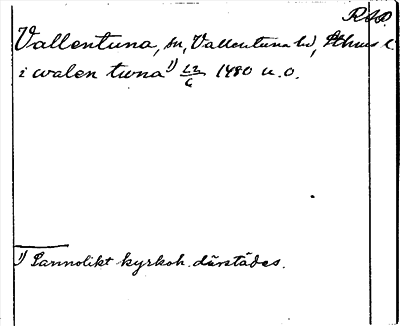 RAP
Vallentuna, sn, Vallentuna hd, Sthms l.
i walen tuna 1) 22/6 1480 u.o.
1) Sannolikt kyrkoh. därstädes.